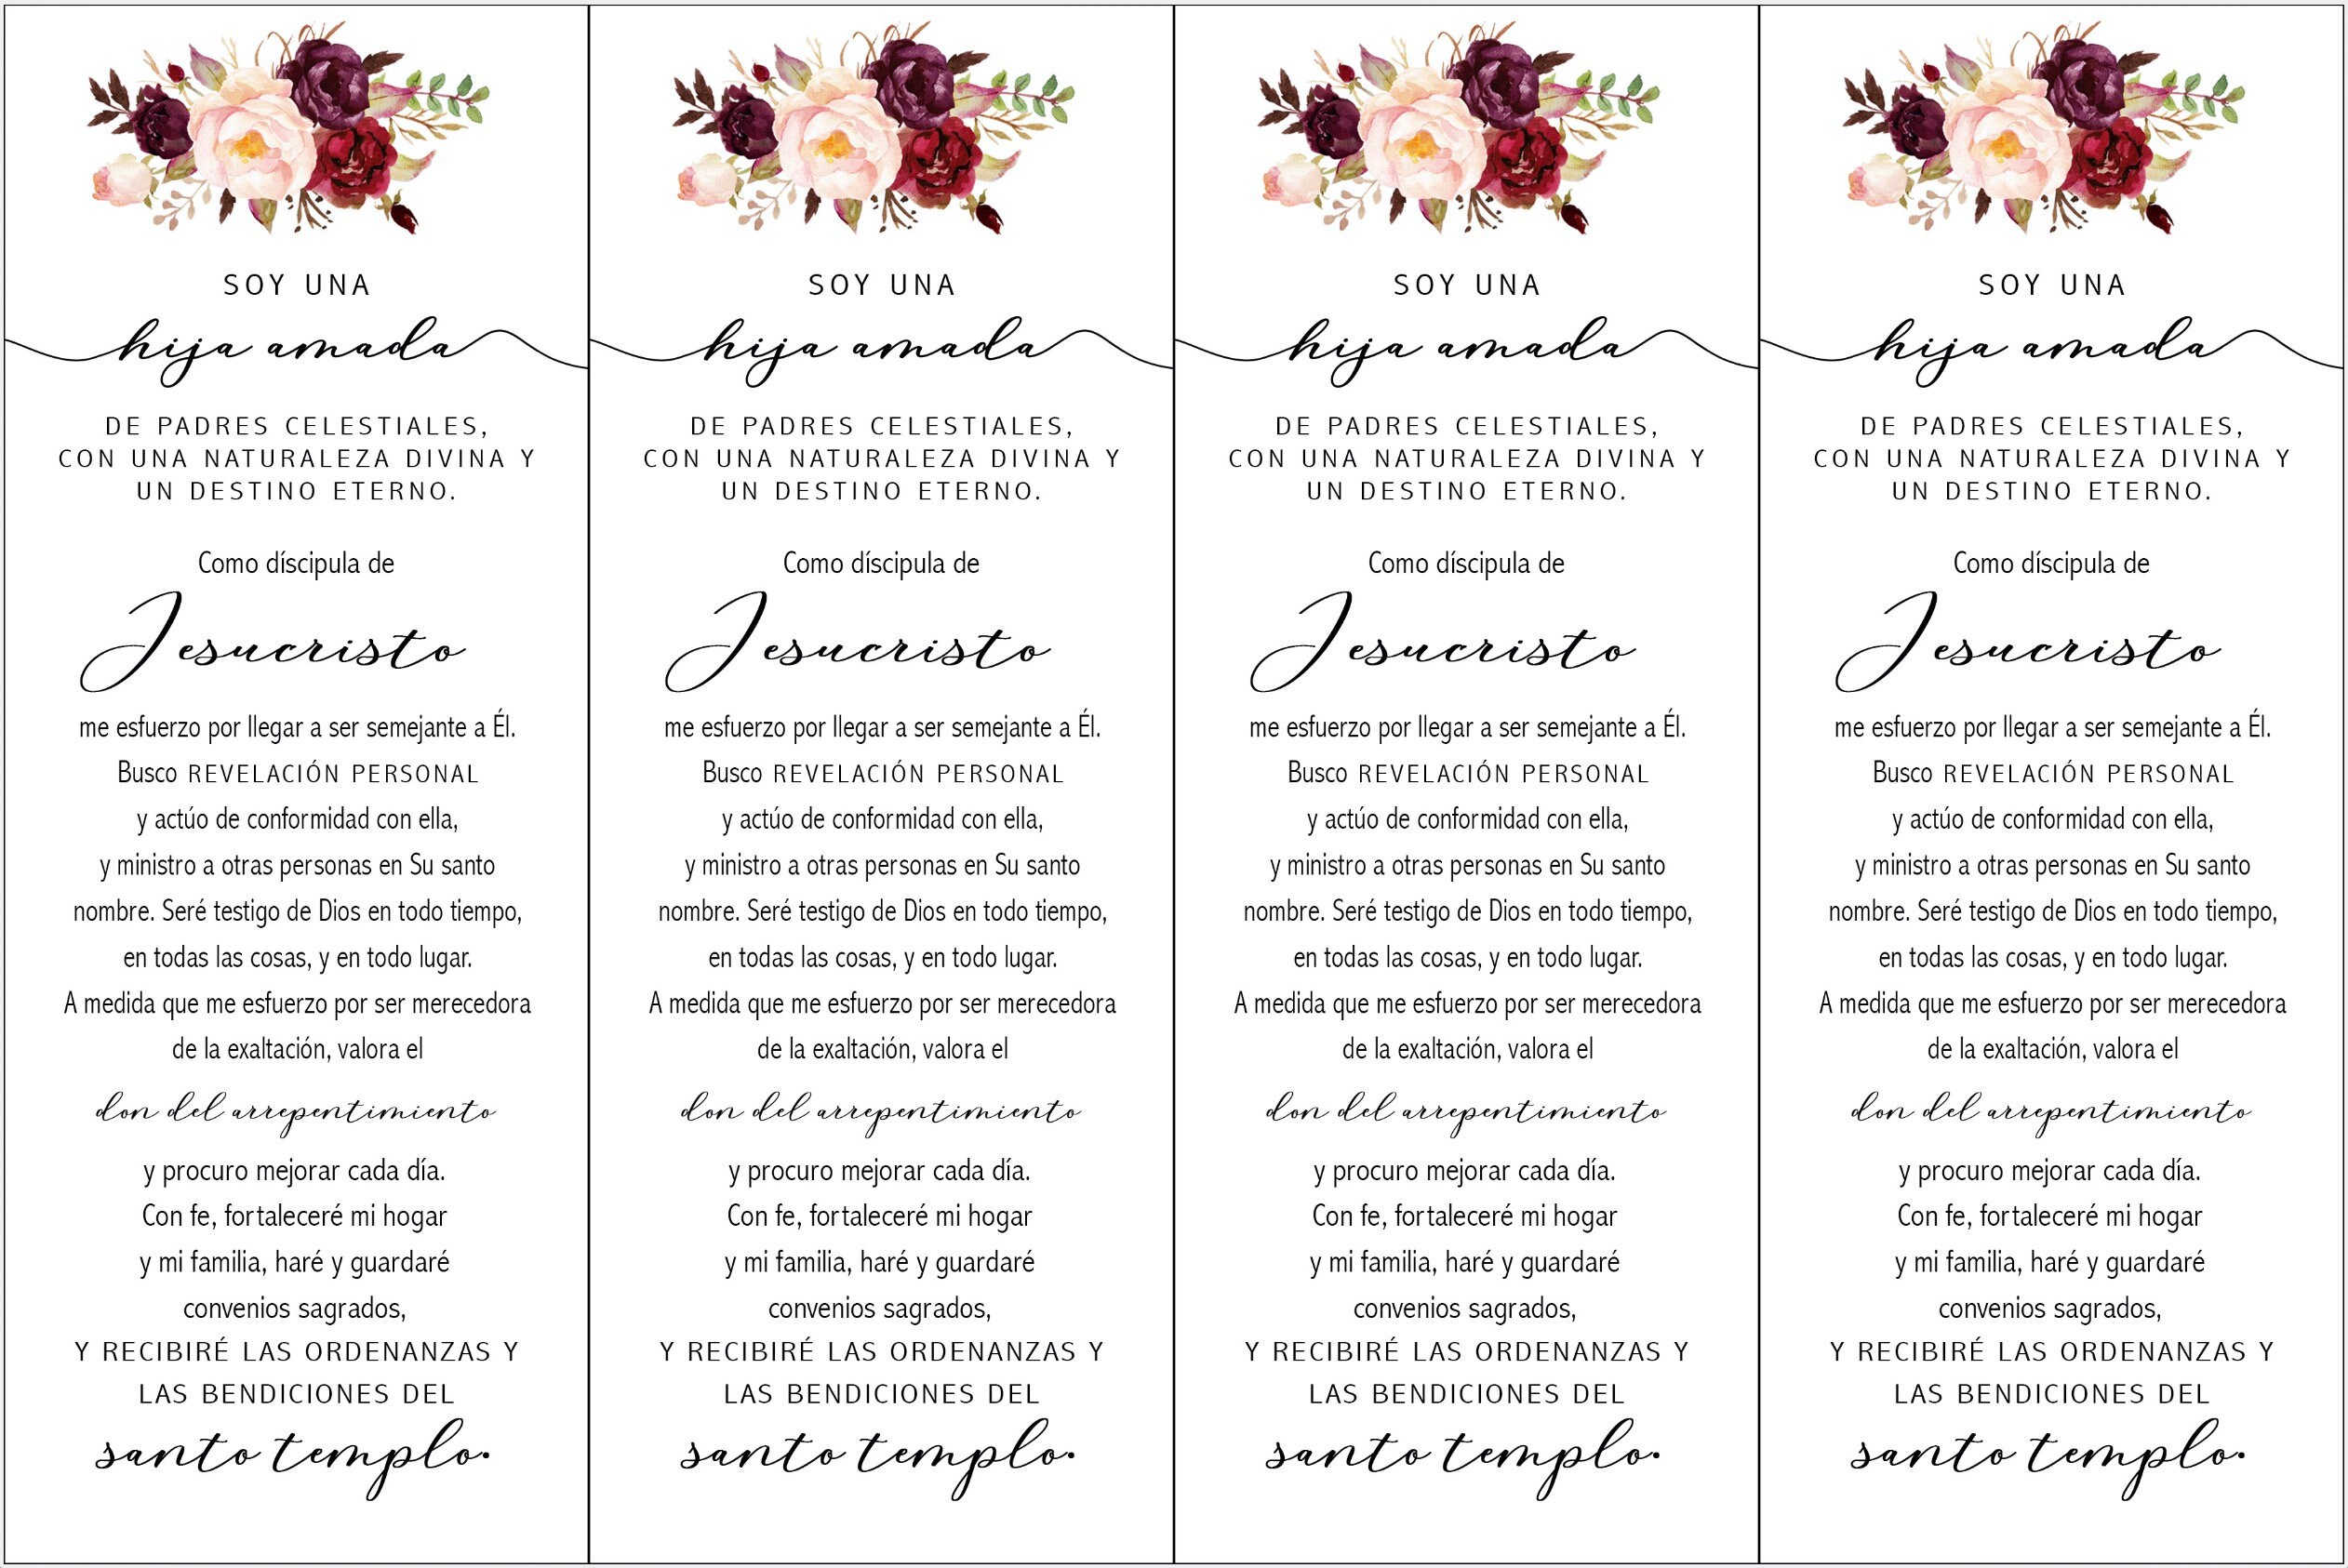 SOY UNA
hija amada
DE PADRES CELESTIALES,
CON UNA NATURALEZA DIVINA Y
UN DESTINO ETERNO.
Como díscipula de
Jesucristo
me esfuerzo por llegar a ser semejante a Él.
Busco REVELACIÓN PERSONAL
y actúo de conformidad con ella,
y ministro a otras personas en Su santo
nombre. Seré testigo de Dios en todo tiempo,
en todas las cosas, y en todo lugar.
A medida que me esfuerzo por ser merecedora
de la exaltación, valora el
don del arrepentimiento
y procuro mejorar cada día.
Con fe, fortaleceré mi hogar
y mi familia, haré y guardaré
convenios sagrados,
Y RECIBIRÉ LAS ORDENANZAS Y
LAS BENDICIONES DEL
santo templo.
SOY UNA
hija amada
DE PADRES CELESTIALES,
CON UNA NATURALEZA DIVINA Y
UN DESTINO ETERNO.
Como díscipula de
Jesucristo
me esfuerzo por llegar a ser semejante a Él.
Busco REVELACIÓN PERSONAL
y actúo de conformidad con ella,
y ministro a otras personas en Su santo
nombre. Seré testigo de Dios en todo tiempo,
en todas las cosas, y en todo lugar.
A medida que me esfuerzo por ser merecedora
de la exaltación, valora el
don del arrepentimiento
y procuro mejorar cada día.
Con fe, fortaleceré mi hogar
y mi familia, haré y guardaré
convenios sagrados,
Y RECIBIRÉ LAS ORDENANZAS Y
LAS BENDICIONES DEL
santo templo.
SOY UNA
hija amada
DE PADRES CELESTIALES,
CON UNA NATURALEZA DIVINA Y
UN DESTINO ETERNO.
Como díscipula de
Jesucristo
me esfuerzo por llegar a ser semejante a Él.
Busco REVELACIÓN PERSONAL
y actúo de conformidad con ella,
y ministro a otras personas en Su santo
nombre. Seré testigo de Dios en todo tiempo,
en todas las cosas, y en todo lugar.
A medida que me esfuerzo por ser merecedora
de la exaltación, valora el
don del arrepentimiento
y procuro mejorar cada día.
Con fe, fortaleceré mi hogar
y mi familia, haré y guardaré
convenios sagrados,
Y RECIBIRÉ LAS ORDENANZAS Y
LAS BENDICIONES DEL
santo templo.
SOY UNA
hija amada
DE PADRES CELESTIALES,
CON UNA NATURALEZA DIVINA Y
UN DESTINO ETERNO.
Como díscipula de
Jesucristo
me esfuerzo por llegar a ser semejante a Él.
Busco REVELACIÓN PERSONAL
y actúo de conformidad con ella,
y ministro a otras personas en Su santo
nombre. Seré testigo de Dios en todo tiempo,
en todas las cosas, y en todo lugar.
A medida que me esfuerzo por ser merecedora
de la exaltación, valora el
don del arrepentimiento
y procuro mejorar cada día.
Con fe, fortaleceré mi hogar
y mi familia, haré y guardaré
convenios sagrados,
Y RECIBIRÉ LAS ORDENANZAS Y
LAS BENDICIONES DEL
santo templo.